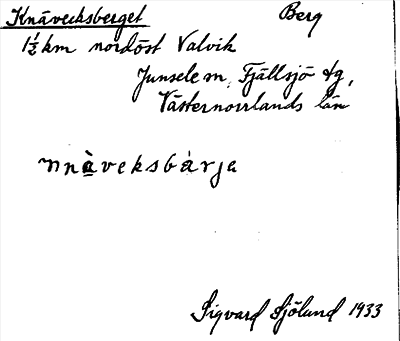 Knävecksberget Berg
1½ km nordöst Valvik
Junsele m, Fjällsjö tg,
Västernorrlands län
nnàveksbàrja
Sigvard Sjölund 1933